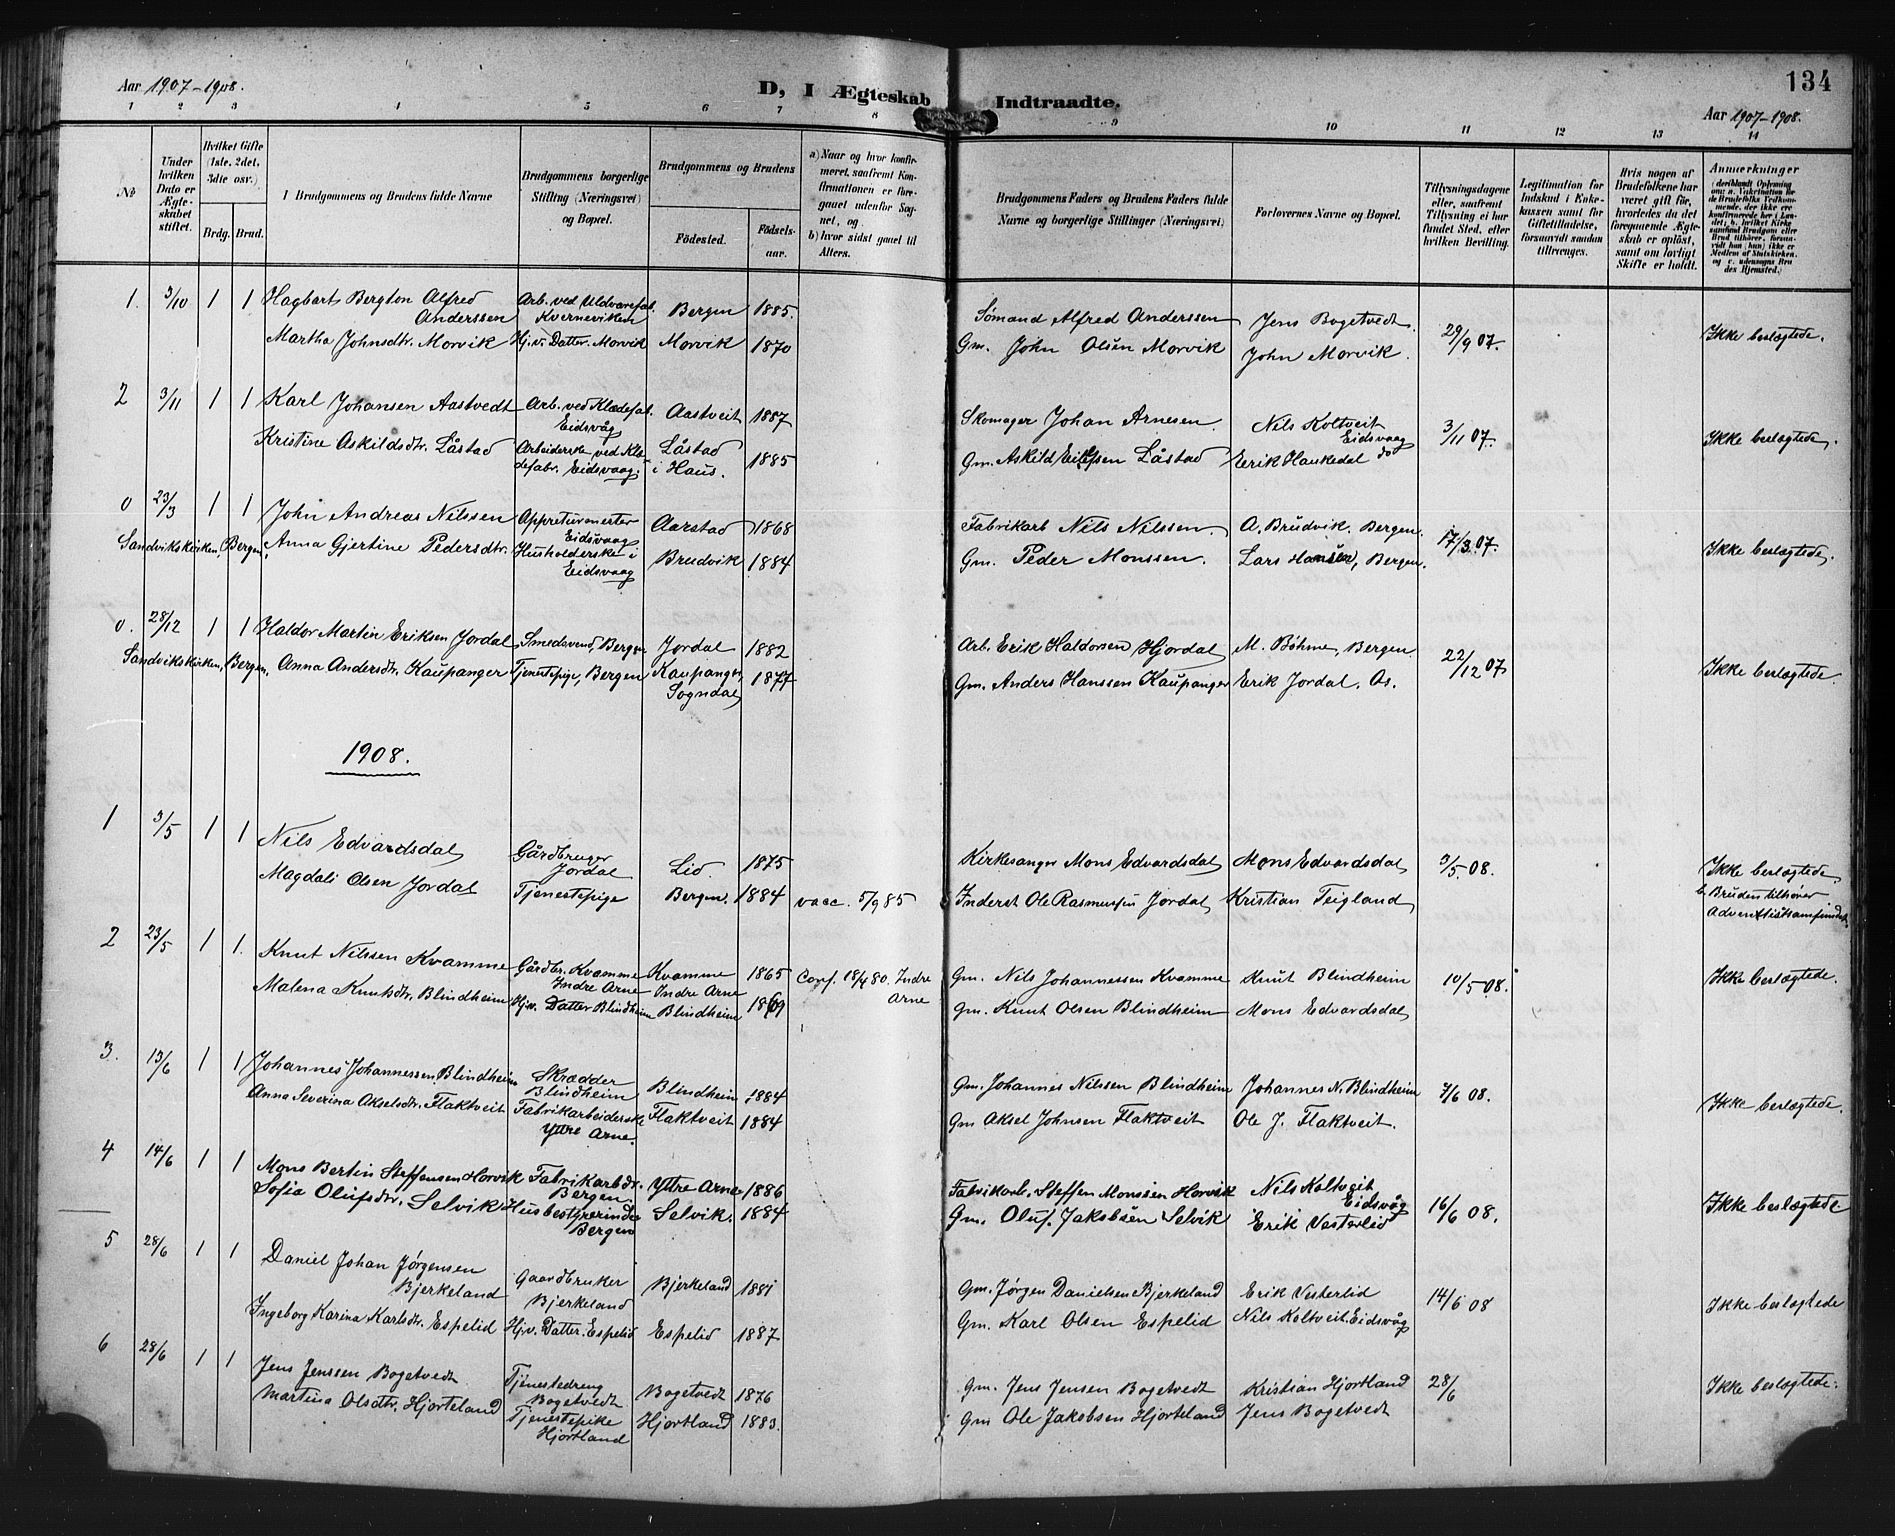 134
Aar 1907-1908.
D, I Ægteskab Indtraadte.
Aar 1907-1908.
1 2 3 4 5 6 7 8 9 10 11 12 13 14
No
Under hvilken Dato er Ægteskabet stiftet.
Hvilket Gifte (1ste, 2det, 3die osv.)
Brdg. Brud.
I Brudgommens og Brudens fulde Navne
Brudgommens borgerlige Stilling (Næringsvei) og Bopæl.
Brudgommens og Brudens
Fødested. Fødselsaar.
a) Naar og hvor konfirmeret, saafremt Konfirmationen er foregaaet udenfor Sognet, og
b) hvor sidst gaaet til Alters.
Brudgommens Faders og Brudens Faders fulde Navne og borgerlige Stillinger (Næringsvei)
Forlovernes Navne og Bopæl.
Tillysningsdagene eller, saafremt Tillysning ei har fundet Sted, efter hvilken Bevilling.
Legitimation for Indskud i Enkekassen samt for Giftetilladelse, forsaavidt saadan tiltrænges.
Hvis nogen af Brudefolkene har været gift før, hvorledes da det foregaaende Ægteskab er opløst, samt om lovligt Skifte er holdt.
Anmærkninger
1. 3/10 1 1 Hagbart Bergton Alfred Anderssen Arb. ved Uldvarefab. Kverneviken Bergen 1885. Sömand Alfred Anderssen Jens Bogetvedt. 29/9 07. Ikke beslægtede.
Martha Johnsdtr. Morvik Hj.v. Datter. Morvik Morvik 1870 Gm. John Olsen Morvik John Morvik.
2 3/11 1 1 Karl Johansen Aastvedt Arb. ved Klædefab. Eidsvåg Aastveit 1887 Skomager Johan Arnesen. Nils Koltveit Eidsvaag 3/11 07. Ikke beslægtede.
Kristine Askildsdtr. Låstad Arbeiderske ved Klædefabr. Eidsvaag. Låstad i Haus. 1885 Gm. Askild Eilefsen Låstad Erik Haukedal do
0 23/3 1 1 John Andreas Nilssen Appreturmester Eidsvaag Aarstad 1868 Fabrikarb Nils Nilssen. A. Brudvik. Bergen. 17/3 07. Ikke beslægtede.
Sandvikskirken, Bergen, Anna Gjertine Pedersdtr. Husholderske i Eidsvaag Brudvik 1884 Gm. Peder Monssen. Lars Hansen, Bergen.
0. 28/12 1 1 Haldor Martin Eriksen Jordal Smedsvend, Bergen Jordal 1882 Arb. Erik Haldorsen Hjordal M. Böhme, Bergen. 22/12 07. Ikke beslægtede.
Sandvikskirken, Bergen, Anna Andersdtr. Kaupanger Tjenestepige, Bergen Kaupanger, Sogndal 1877 Gm. Anders Hanssen Kaupanger Erik Jordal. Os.
1908.
1 3/5 1 1 Nils Edvardsdal Gårdbruger Jordal Lid. 1875 Kirkesanger Mons Edvardsdal Mons Edvardsdal 3/5 08. Ikke beslægtede.
Magdali Olsen Jordal Tjenestepige Bergen. 1884 vacc. 5/9 85 Inderst Ole Rasmussen Jordal Kristian Teigland b. Bruden tilhører Adventistsamfundet
2 23/5 1 1. Knut Nilssen Kvamme Gårdbr. Kvamme Indre Arne Kvamme Indre Arne 1865 Conf. 18/4 80. Indre Arne Gm. Nils Johannessen Kvamme Knut Blindheim 10/5 08. Ikke beslægtede.
Malena Knutsdtr. Blindheim Hjv. Datter Blindheim Blindheim 1869 Gm. Knut Olsen Blindheim Mons Edvardsdal
3. 13/6 1 1 Johannes Johannessen Blindheim Skrædder Blindheim Blindheim 1884 Gm. Johannes Nilssen Blindheim Johannes N. Blindheim 7/6 08. Ikke beslægtede.
Anna Severina Akselsdtr. Flaktveit Fabrikarbeiderske Yttre Arne. Flaktveit 1884 Gm Aksel Johnsen Flaktveit Ole J. Flaktveit.
4 14/6 1 1 Mons Bertin Steffensen Horvik Fabrikarbdr. Bergen. Yttre Arne 1886 Fabrikarb. Steffen Monssen Horvik Nils Koltveit Eidsvåg 16/6 08. Ikke beslægtede.
Sofia Olufsdtr. Selvik Husbestyrerinde Bergen Selvik. 1884 Gm. Oluf Jakobsen Selvik Erik Vesterlid
5 28/6 1 1 Daniel Johan Jørgensen Bjerkeland Gaardbruker Bjerkeland Bjerkeland 1881 Gm. Jørgen Danielsen Bjerkeland Erik Vesterlid 14/6 08 Ikke beslægtede
Ingeborg Karina Karlsdtr. Espelid Hjv. Datter. Espelid Espelid 1887 Gm. Karl Olsen Espelid Nils Koltveit. Eidsvåg
6 28/6 1 1 Jens Jenssen Bogetvedt Tjenestedreng Bogetvedt Bogetvedt 1876 Gm. Jens Jensen Bogetvedt Kristian Hjortland 28/6 Ikke beslægtede.
Martina Olsdtr. Hjorteland Tjenestepike Hjortland Hjortland 1883. Gm Ole Jakobsen Hjorteland Jens Bogetvedt